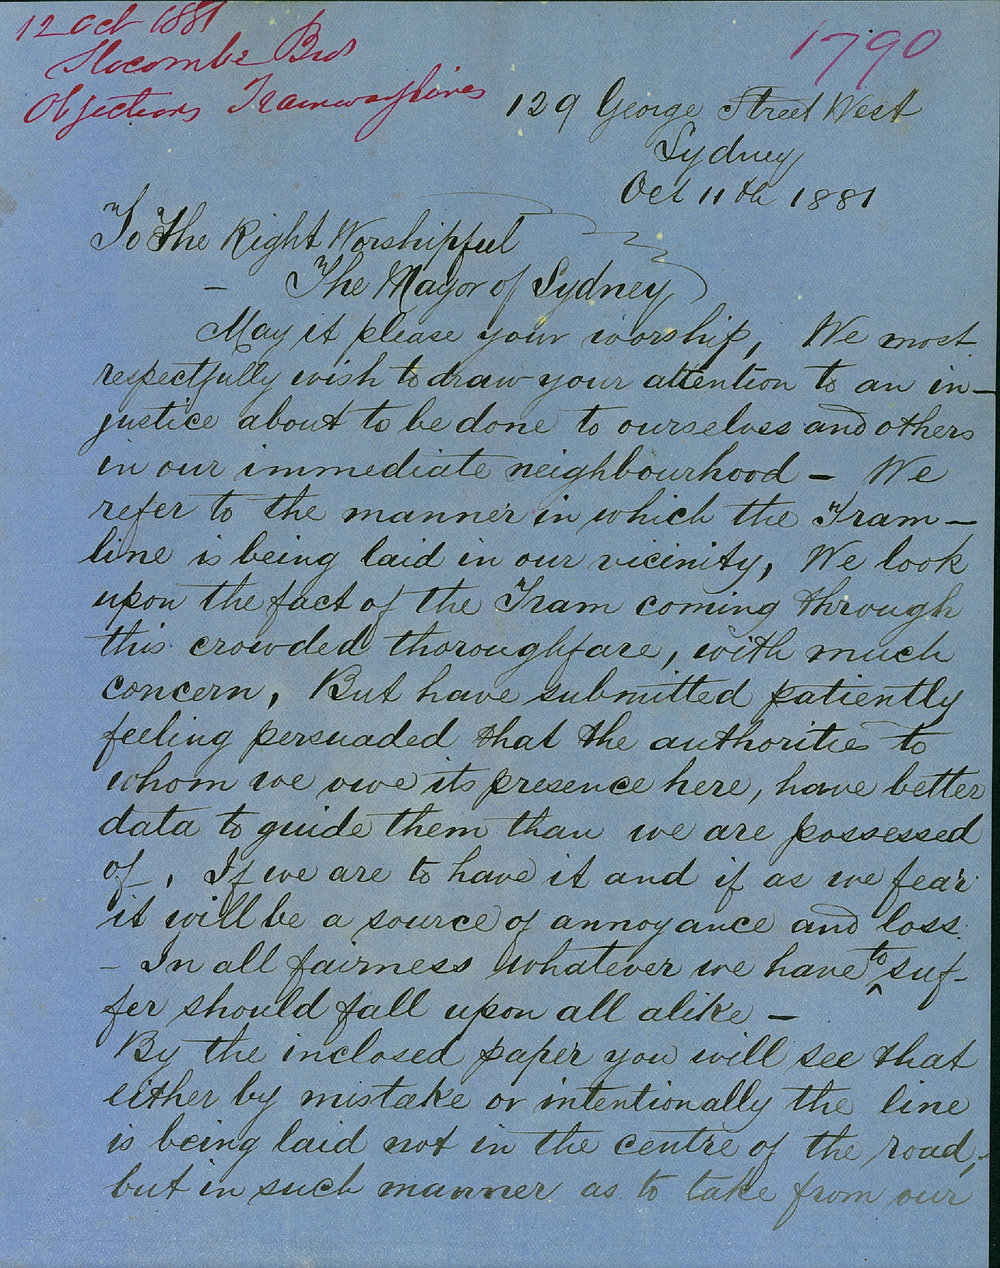 12 Oct 1881
Slocombe Bros
Objections Tramway lines
1790
129 George Street West
Sydney
Oct 11th 1881
To The Right Worshipful
- The Mayor of Sydney
May it please your worship, We most
respectfully wish to draw your attention to an in-
justice about to be done to ourselves and others
in our immediate neighbourhood - We
refer to the manner in which the Tram-
line is being laid in our vicinity, We look
upon the fact of the Tram coming through
this crowded thoroughfare, with much
concern, But have submitted patiently
feeling persuaded that the authorities to
whom we owe its presence here, have better
data to guide them than we are possessed
of, If we are to have it and if as we fear
it will be a source of annoyance and loss.
- In all fairness whatever we have to suf-
fer should fall upon all alike -
By the inclosed paper you will see that
either by mistake or intentionally the line
is being laid not in the centre of the road,
but in such manner as to take from our